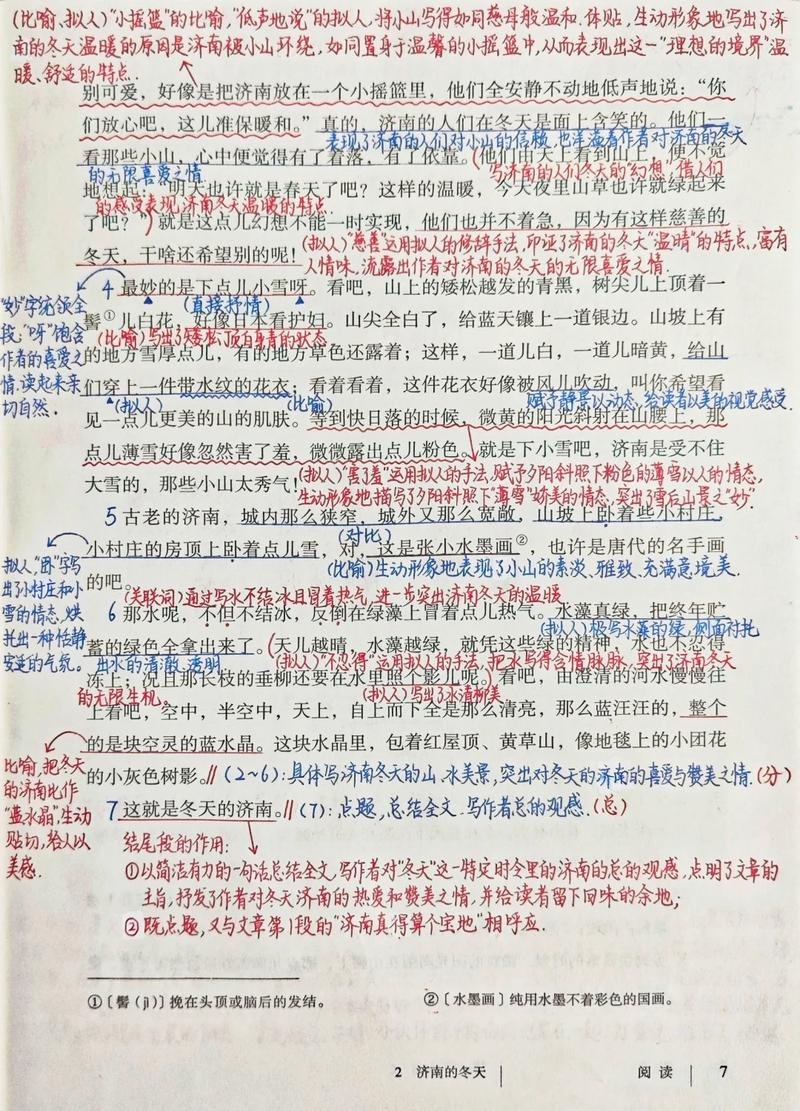 (比喻、拟人)"小摇篮"的比喻,"低声地说"的拟人,将小山写得如同慈母般温和、体贴,生动形象地写出了济
南的冬天温暖的原因是济南被小山环绕,如同置身于温馨的小摇篮中,从而表现出这一"理想的境界"温
暖、舒适的特点.
别可爱,好像是把济南放在一个小摇篮里,他们全安静不动地低声地说:“你
们放心吧,这儿准保暖和。”真的,济南的人们在冬天是面上含笑的。他们一
表现了济南的人们对小山的信赖,也洋溢着作者对济南的冬天
看那些小山,心中便觉得有了着落,有了依靠。(他们由天上看到山上,便不觉
的无限喜爱之情
写济南的人们冬天的"幻想",借人们
地想起:“明天也许就是春天了吧?这样的温暖,今天夜里山草也许就绿起来
的感受表现济南冬天温暖的特点.
了吧?”)就是这点儿幻想不能一时实现,他们也并不着急,因为有这样慈善的
冬天,干啥还希望别的呢!
(拟人)"慈善"运用拟人的修辞手法,印证了济南的冬天"温晴"的特点,富有
人情味,流露出作者对济南的冬天的无限喜爱之情.
4 最妙的是下点儿小雪呀。看吧,山上的矮松越发的青黑,树尖儿上顶着一
"妙"字统领全
段,"呀"饱含
作者的喜爱之
情,读起来亲
切自然.
(直接抒情)
髻①儿白花,好像日本看护妇。山尖全白了,给蓝天镶上一道银边。山坡上有
(比喻)写出了矮松顶白身青的状态
的地方雪厚点儿,有的地方草色还露着;这样,一道儿白,一道儿暗黄,给山
们穿上一件带水纹的花衣;看着看着,这件花衣好像被风儿吹动,叫你希望看
(拟人)
(比喻)
赋予静景以动态,给读者以美的视觉感受.
见一点儿更美的山的肌肤。等到快日落的时候,微黄的阳光斜射在山腰上,那
点儿薄雪好像忽然害了羞,微微露出点儿粉色。就是下小雪吧,济南是受不住
大雪的,那些小山太秀气!
(拟人)"害了羞"运用拟人的手法,赋予夕阳斜照下粉色的薄雪以人的情态,
生动形象地描写了夕阳斜照下"薄雪"娇美的情态,突出了雪后山景之"妙".
5 古老的济南,城内那么狭窄,城外又那么宽敞,山坡上卧着些小村庄,
(对比)
小村庄的房顶上卧着点儿雪,对,这是张小水墨画②,也许是唐代的名手画
拟人,"卧"字写
出了小村庄和小
雪的情态,烘
托出一种恬静
安适的气氛.
(比喻)生动形象地表现了小山的素淡、雅致、充满意境美.
的吧。
(关联词)通过写水不结冰且冒着热气,进一步突出济南冬天的温暖
6 那水呢,不但不结冰,反倒在绿藻上冒着点儿热气。水藻真绿,把终年贮
(拟人)极写水藻的绿,侧面衬托
蓄的绿色全拿出来了。(天儿越晴,水藻越绿,就凭这些绿的精神,水也不忍得
出水的清澈、透明
(拟人)"不忍得"运用拟人的手法,把水写得含情脉脉,突出了济南冬天
冻上;况且那长枝的垂柳还要在水里照个影儿呢。)看吧,由澄清的河水慢慢往
的无限生机。
(拟人)写出了水清柳美
上看吧,空中,半空中,天上,自上而下全是那么清亮,那么蓝汪汪的,整个
的是块空灵的蓝水晶。这块水晶里,包着红屋顶、黄草山,像地毯上的小团花
比喻,把冬天
的济南比作
"蓝水晶",生动
贴切,给人以
美感.
的小灰色树影。// (2~6):具体写济南冬天的山、水美景,突出对冬天的济南的喜爱与赞美之情.(分)
7 这就是冬天的济南。// (7):点题,总结全文.写作者总的观感.(总)
结尾段的作用:
①以简洁有力的一句话总结全文,写作者对"冬天"这一特定时令里的济南的总的观感,点明了文章的
主旨,抒发了作者对冬天济南的热爱和赞美之情,并给读者留下回味的余地;
②既点题,又与文章第1段的"济南真得算个宝地"相呼应.
①〔髻(jì)〕挽在头顶或脑后的发结。
②〔水墨画〕纯用水墨不着彩色的国画。
2 济南的冬天
阅读 7